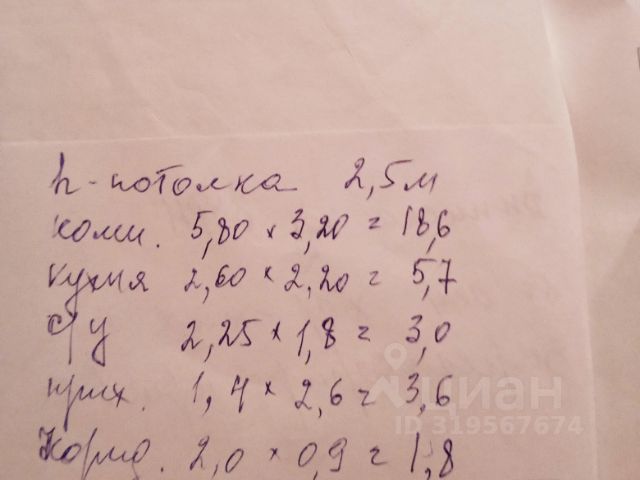 h-потолка 2,5м
комн. 5,80 × 3,20 = 18,6
кухня 2,60 × 2,20 = 5,7
с/у 2,25 × 1,8 = 3,0
прих. 1,4 × 2,6 = 3,6
циан
ID 319567674
Корид. 2,0 × 0,9 = 1,8